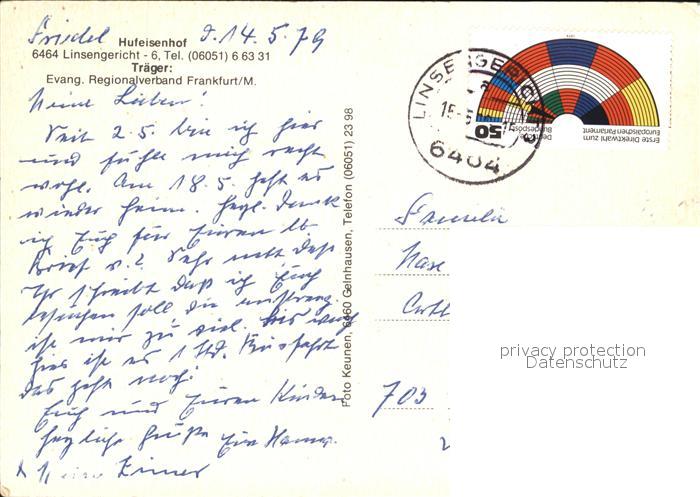 Friedel d. 14.5.79
Hufeisenhof
6464 Linsengericht - 6, Tel. (06051) 6 63 31
Träger:
Evang. Regionalverband Frankfurt/M.
Meine Lieben!
Seit 2.5. bin ich hier
und fühle mich recht
wohl. Am 18.5. geht es
wieder heim. Hzgl. Dank
ich Euch für Euren lb.
Brief v. 2. Sehr nett daß
Ihr schreibt daß ich Euch
besuchen soll die
ist mir zu viel. bis
hier ist es 1 Std. Busfahrt
das geht noch!
Euch und Euren Kindern
herzliche Grüße Eure
Foto Keunen, 6460 Gelnhausen, Telefon (06051) 23 98
LINSENGERICHT
15-5
6464
50
Deutsche
Bundespost
Erste Direktwahl zum
Europäischen Parlament
1979
Familie
703
privacy protection
Datenschutz